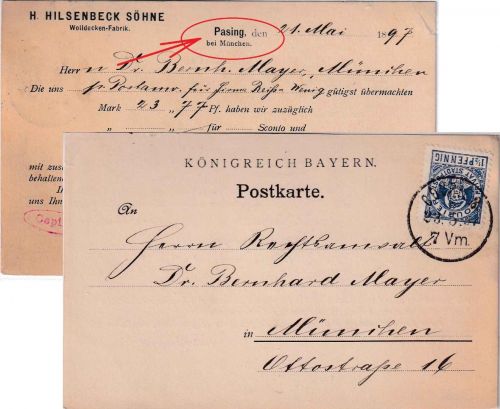 H. HILSENBECK SÖHNE
Wolldecken-Fabrik.
Pasing, den 21. Mai 1897
bei München.
Herrn Dr. Bernh. Mayer, München
Die uns p. Postamt, für Firma Reiße Wenig gütigst übermachten
Mark 23 „ 77 Pf. haben wir zuzüglich
„ „ für Sconto und
mit zu
behalten
I
uns Ihn
KÖNIGREICH BAYERN.
Postkarte.
1½ PFENNIG
7 Vm.
An
Herrn Rechtsanwalt
Dr. Bernhard Mayer
in München
Ottostraße 16